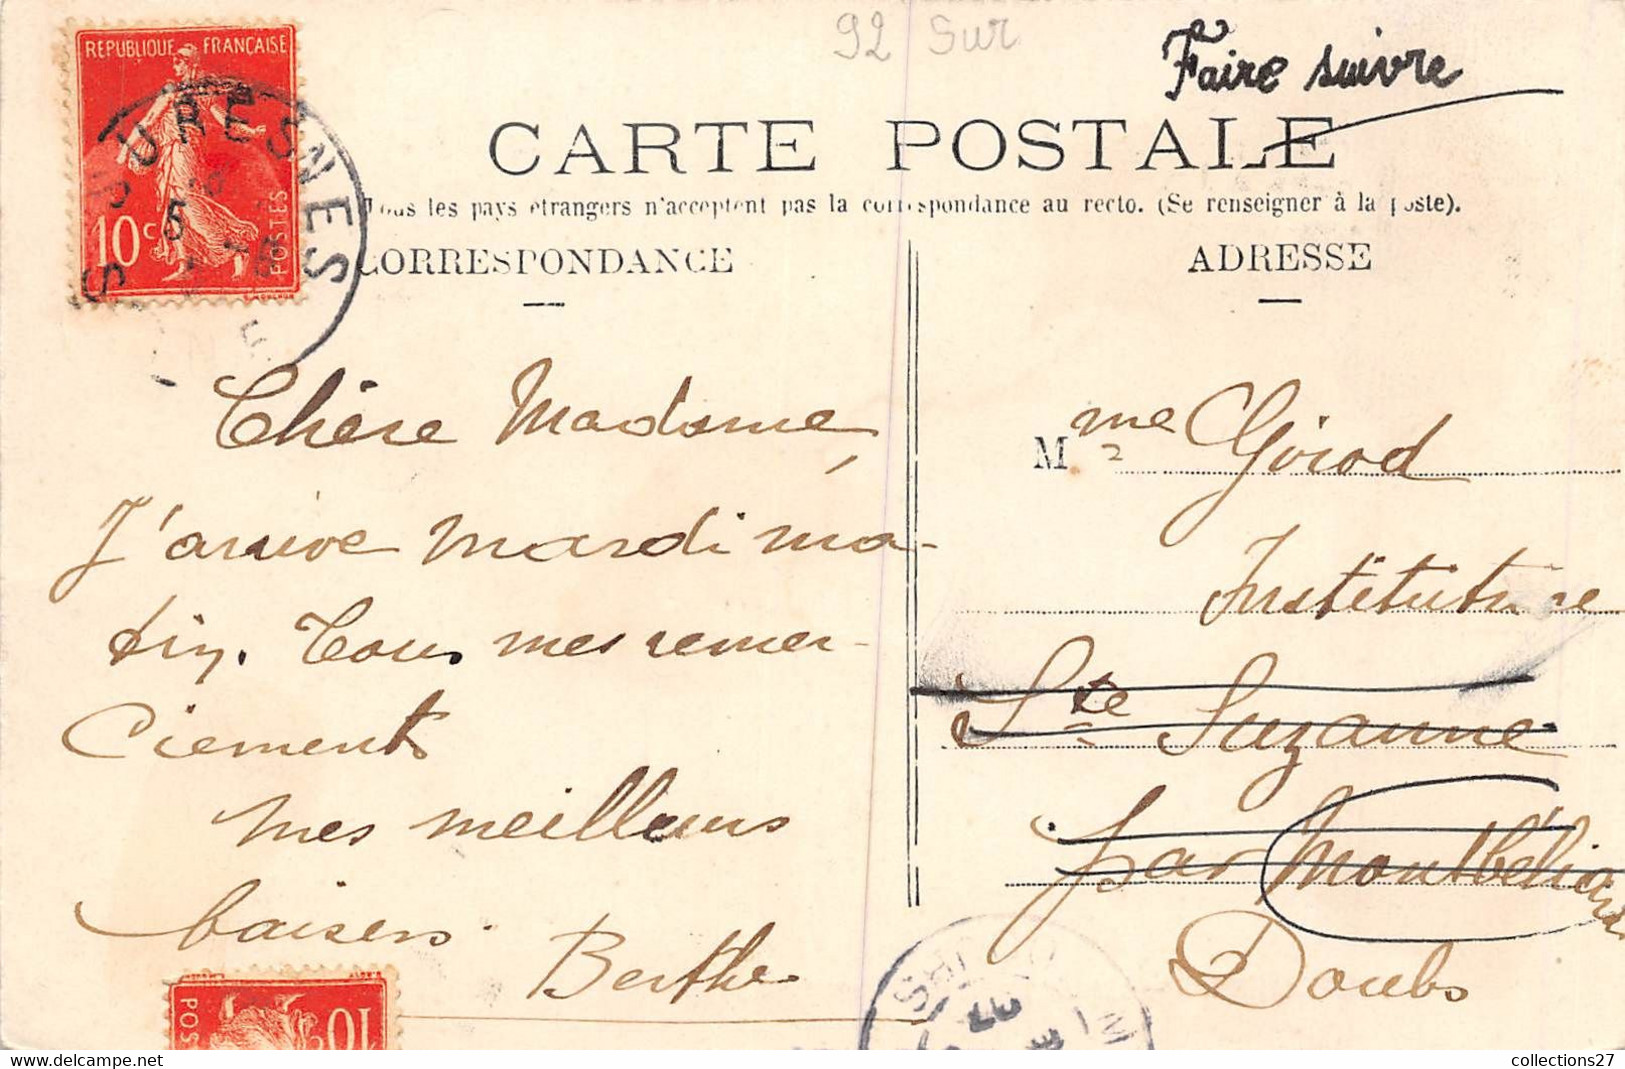 92 Sur
Faire suivre
REPUBLIQUE FRANÇAISE
10c
POSTES
SURESNES
5
CARTE POSTALE
Tous les pays étrangers n'acceptent pas la correspondance au recto. (Se renseigner à la poste).
CORRESPONDANCE
ADRESSE
Chère Madame,
J'arrive mardi ma-
tin. Tous mes remer-
ciements
mes meilleurs
baisers.
Berthe
Mme Girod
Institutrice
Ste Suzanne
par Montbéliard
Doubs
POS
10c
collections27